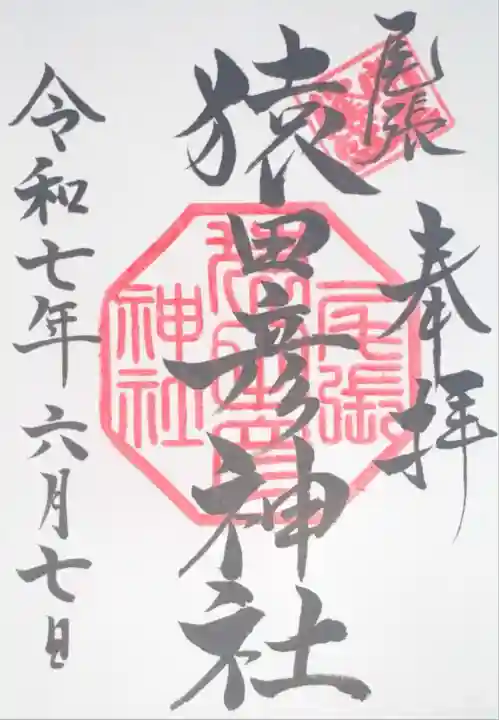 尾張
奉拝
猿田彦神社
令和七年六月七日
尾張
猿田彦
神社